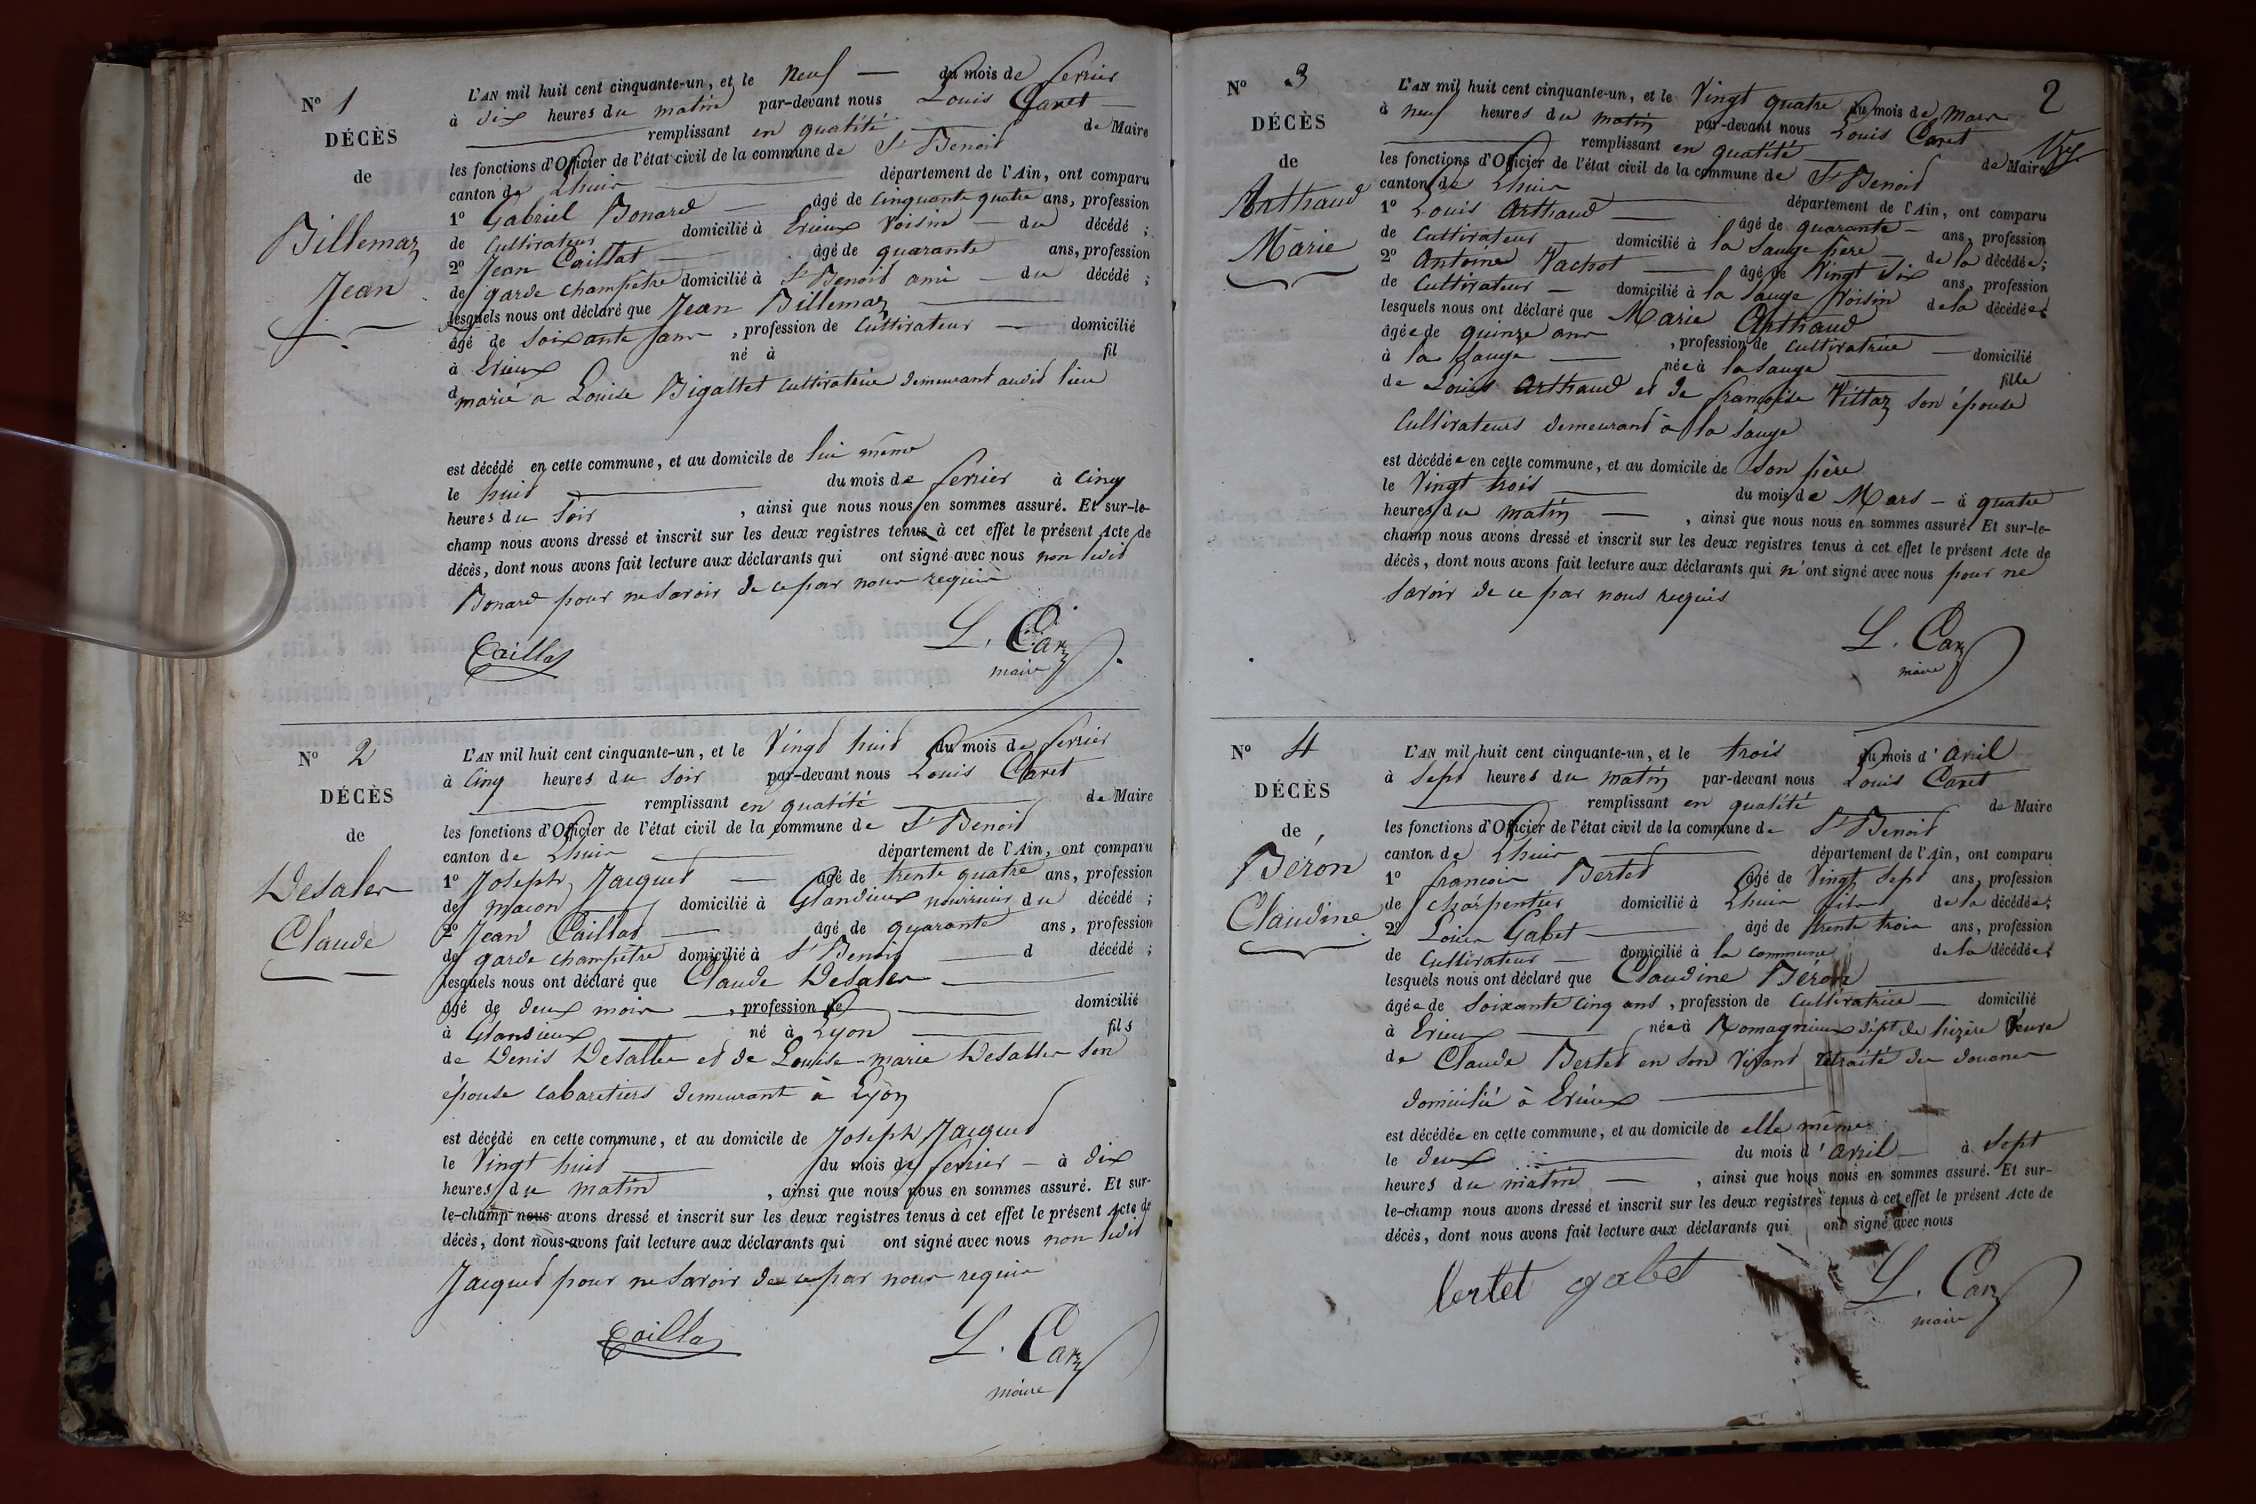 N° 1
DÉCÈS
de
Billemaz
Jean
L'AN mil huit cent cinquante-un, et le neuf du mois de fevrier
à dix heures du matin par-devant nous Louis Caret
remplissant en qualité de Maire
les fonctions d'Officier de l'état civil de la commune de St Benoit
canton de Lhuis département de l'Ain, ont comparu
1° Gabriel Bonard âgé de cinquante quatre ans, profession
de cultivateur domicilié à Erieux voisin du décédé ;
2° Jean Caillat âgé de quarante ans, profession
de garde champêtre domicilié à St Benoit ami du décédé ;
lesquels nous ont déclaré que Jean Billemaz
âgé de soixante ans, profession de cultivateur domicilié
à Erieux né à fil
d marié a Louise Bigallet cultivatrice demeurant audit lieu
est décédé en cette commune, et au domicile de lui même
le huit du mois de fevrier à cinq
heures du soir, ainsi que nous nous en sommes assuré. Et sur-le-
champ nous avons dressé et inscrit sur les deux registres tenus à cet effet le présent Acte de
décès, dont nous avons fait lecture aux déclarants qui ont signé avec nous non ledit
Bonard pour ne savoir de ce par nous requis
Caillat L. Caret
maire
N° 2
DÉCÈS
de
Desaler
Claude
L'AN mil huit cent cinquante-un, et le vingt huit du mois de fevrier
à cinq heures du soir par-devant nous Louis Caret
remplissant en qualité de Maire
les fonctions d'Officier de l'état civil de la commune de St Benoit
canton de Lhuis département de l'Ain, ont comparu
1° Joseph Jacquet âgé de trente quatre ans, profession
de maçon domicilié à Glandieux nourricier du décédé ;
2° Jean Caillat âgé de quarante ans, profession
de garde champêtre domicilié à St Benoit d décédé ;
lesquels nous ont déclaré que Claude Desaler
âgé de deux mois, profession de domicilié
à Glandieux né à Lyon fils
de Denis Desaller et de Louise-marie Desaller son
épouse cabaretiers demeurant à Lyon
est décédé en cette commune, et au domicile de Joseph Jacquet
le vingt huit du mois de fevrier à dix
heures du matin, ainsi que nous nous en sommes assuré. Et sur-
le-champ nous avons dressé et inscrit sur les deux registres tenus à cet effet le présent Acte de
décès, dont nous avons fait lecture aux déclarants qui ont signé avec nous non ledit
Jacquet pour ne savoir de ce par nous requis
Caillat L. Caret
maire
2
N° 3
DÉCÈS
de
Arthaud
Marie
L'AN mil huit cent cinquante-un, et le vingt quatre du mois de Mars
à neuf heures du matin par-devant nous Louis Caret
remplissant en qualité de Maire
les fonctions d'Officier de l'état civil de la commune de St Benoit
canton de Lhuis département de l'Ain, ont comparu
1° Louis Arthaud âgé de quarante ans, profession
de cultivateur domicilié à la Sauge père de la décédée ;
2° Antoine Vachot âgé de vingt six ans, profession
de cultivateur domicilié à la Sauge voisin de la décédée ;
lesquels nous ont déclaré que Marie Arthaud
âgée de quinze ans, profession de cultivatrice domicilié
à la Sauge née à la Sauge fille
de Louis Arthaud et de françoise Villaz son épouse
cultivateurs demeurant à la Sauge
est décédée en cette commune, et au domicile de son père
le vingt trois du mois de Mars à quatre
heures du matin, ainsi que nous nous en sommes assuré. Et sur-le-
champ nous avons dressé et inscrit sur les deux registres tenus à cet effet le présent Acte de
décès, dont nous avons fait lecture aux déclarants qui n'ont signé avec nous pour ne
savoir de ce par nous requis
L. Caret
maire
N° 4
DÉCÈS
de
Béron
Claudine
L'AN mil huit cent cinquante-un, et le trois du mois d'avril
à sept heures du matin par-devant nous Louis Caret
remplissant en qualité de Maire
les fonctions d'Officier de l'état civil de la commune de St Benoit
canton de Lhuis département de l'Ain, ont comparu
1° françois Bertet âgé de vingt sept ans, profession
de charpentier domicilié à Lhuis fils de la décédée ;
2° Louis Gabet âgé de trente trois ans, profession
de cultivateur domicilié à la commune de la décédée ;
lesquels nous ont déclaré que Claudine Béron
âgée de soixante cinq ans, profession de cultivatrice domicilié
à Erieux née à Romagnieux dépt de lizère veuve
de Claude Bertet en son vivant retraité des douanes
domicilié à Erieux
est décédée en cette commune, et au domicile de elle même
le deux du mois d'avril à sept
heures du matin, ainsi que nous nous en sommes assuré. Et sur-
le-champ nous avons dressé et inscrit sur les deux registres tenus à cet effet le présent Acte de
décès, dont nous avons fait lecture aux déclarants qui ont signé avec nous
bertet gabet L. Caret
maire